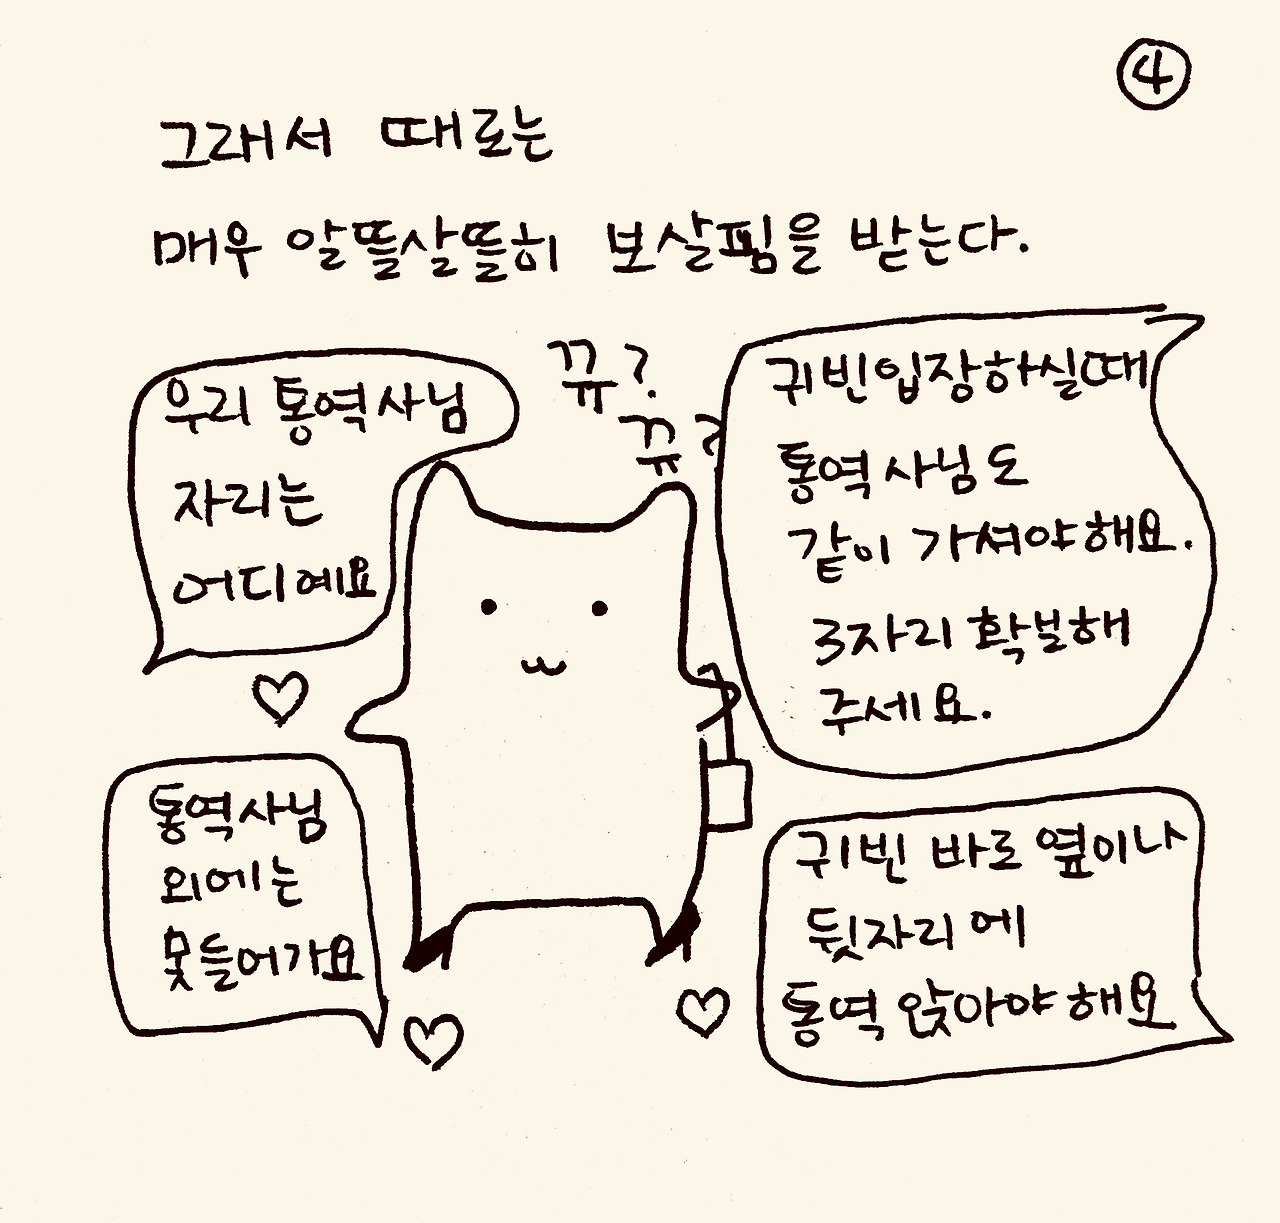 ④
그래서 때로는
매우 알뜰살뜰히 보살핌을 받는다.
우리 통역사님
자리는
어디예요
뀨?
뀨?
귀빈입장하실때
통역사님도
같이 가셔야해요.
3자리 확보해
주세요.
통역사님
외에는
못들어가요
귀빈 바로 옆이나
뒷자리에
통역 앉아야해요